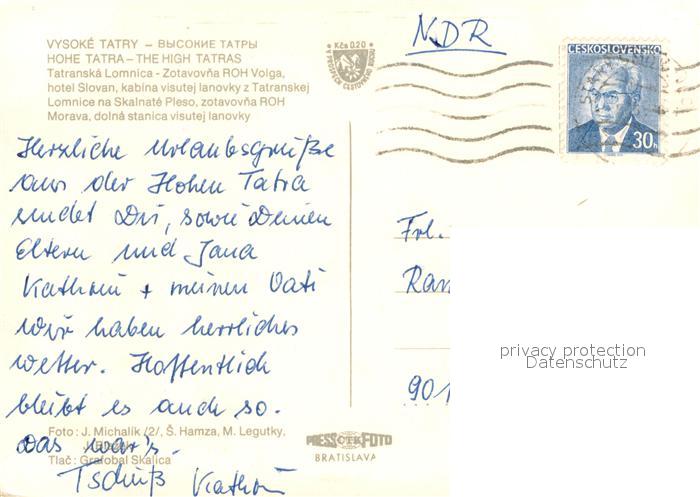 VYSOKÉ TATRY – ВЫСОКИЕ ТАТРЫ
HOHE TATRA – THE HIGH TATRAS
Tatranská Lomnica - Zotavovňa ROH Volga,
hotel Slovan, kabína visutej lanovky z Tatranskej
Lomnice na Skalnaté Pleso, zotavovňa ROH
Morava, dolná stanica visutej lanovky
Kčs 0.20
NDR
ČESKOSLOVENSKO
30h
Herzliche Urlaubsgrüße
aus der Hohen Tatra
sendet Dir, sowie Deinen
Eltern und Jana
Kathrin + meinen Vati
Wir haben herrliches
Wetter. Hoffentlich
bleibt es auch so.
Das war's.
Tschüß Kathrin
Frl.
901
privacy protection
Datenschutz
Foto: J. Michalík /2/, Š. Hamza, M. Legutky,
Tlač: Grafobal Skalica
PRESSFOTO
BRATISLAVA